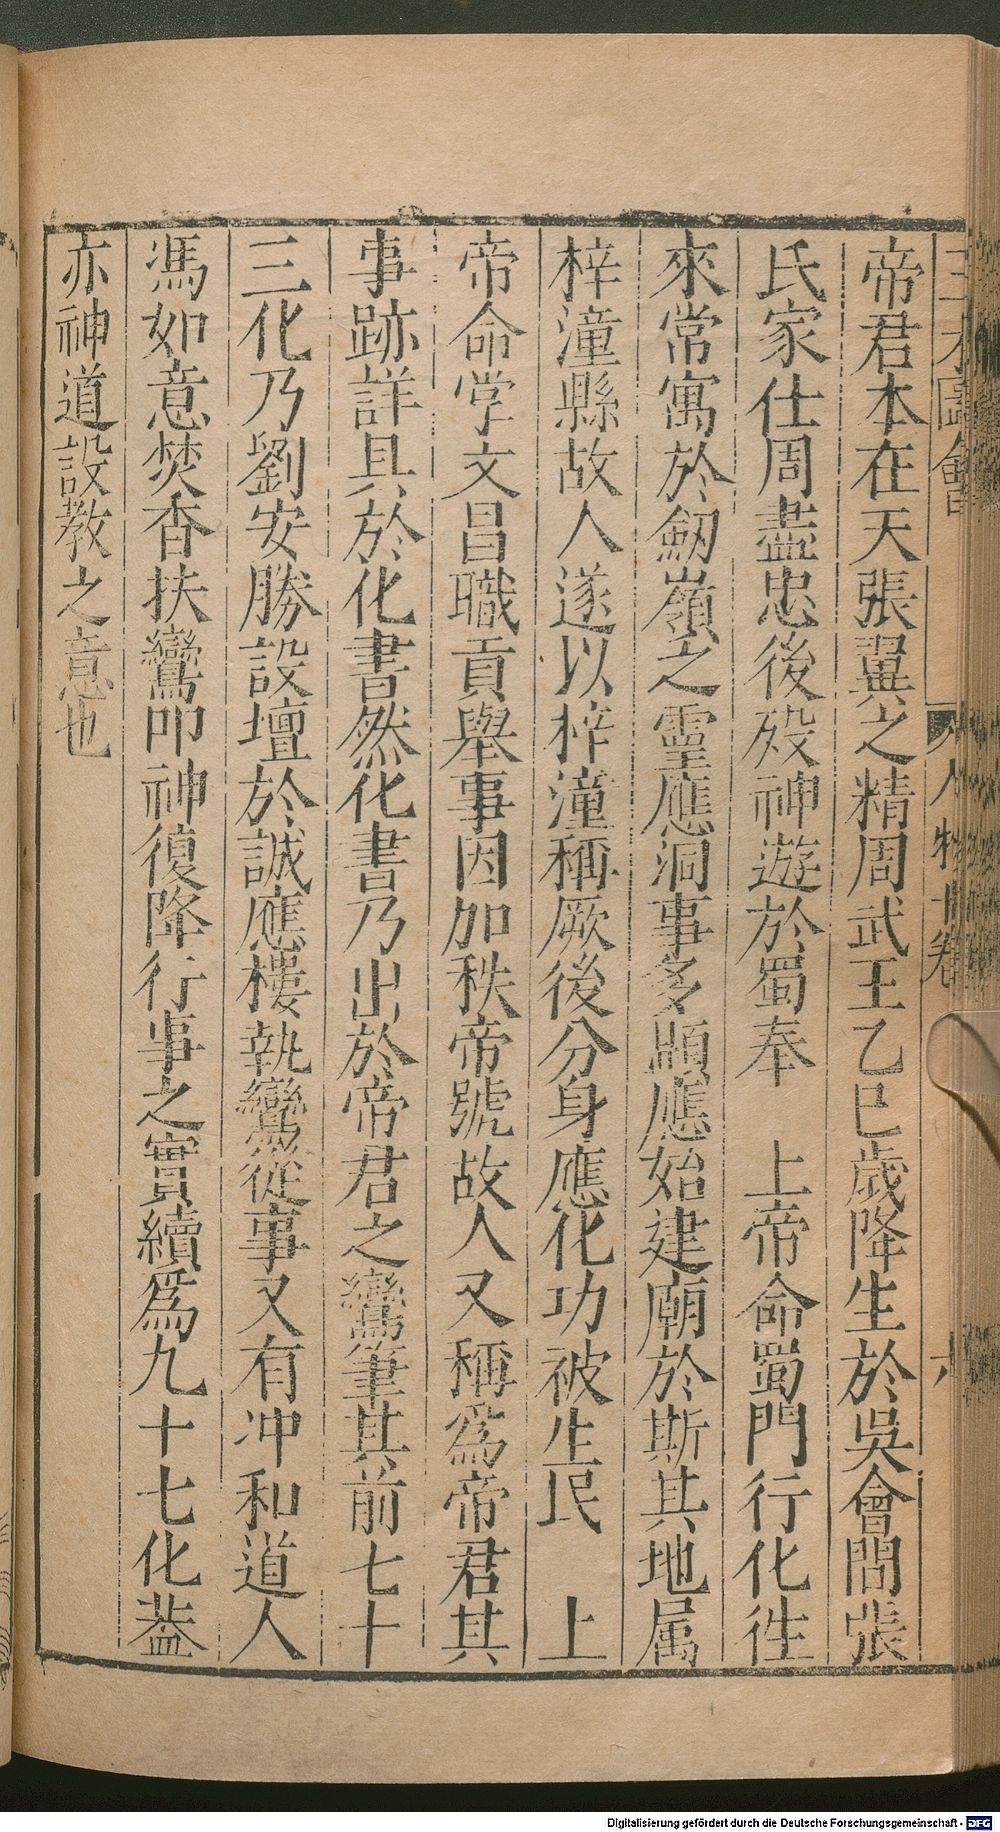 三才圖會 人物十卷 六
帝君本在天張翼之精周武王乙巳歲降生於吳會間張
氏家仕周盡忠後歿神遊於蜀奉 上帝命蜀門行化徃
來常寓於劒嶺之靈應洞事多顯應始建廟於斯其地属
梓潼縣故人遂以梓潼稱厥後分身應化功被生民 上
帝命掌文昌職貢舉事因加秩帝號故人又稱爲帝君其
事跡詳具於化書然化書乃出於帝君之鸞筆其前七十
三化乃劉安勝設壇於誠應樓執鸞從事又有冲和道人
馮如意焚香扶鸞叩神復降行事之實續爲九十七化葢
亦神道設教之意也
Digitalisierung gefördert durch die Deutsche Forschungsgemeinschaft - DFG